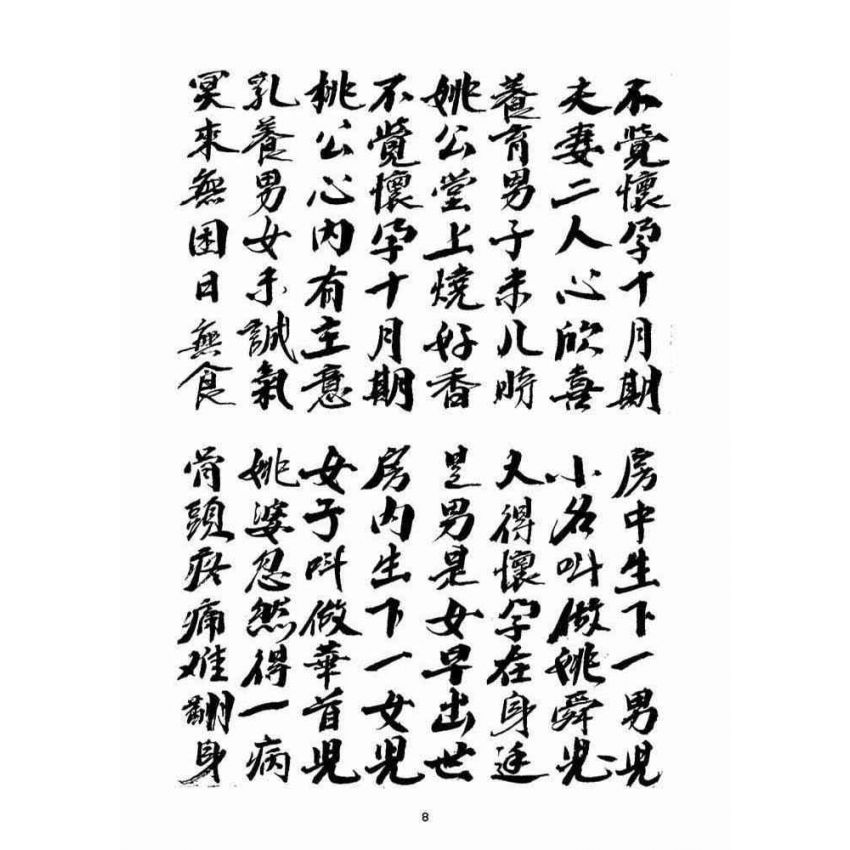 不覺懷孕十月期
房中生下一男児
夫妻二人心欣喜
小名叫做姚舜児
養育男子未几時
又得懷孕在身
姚公堂上燒好香
是男是女早出世
不覺懷孕十月期
房内生下一女児
桃公心内有主意
女子叫做華首児
乳養男女未誠氣
姚婆忽然得一病
冥來無困日無食
骨頭疼痛难翻身
8